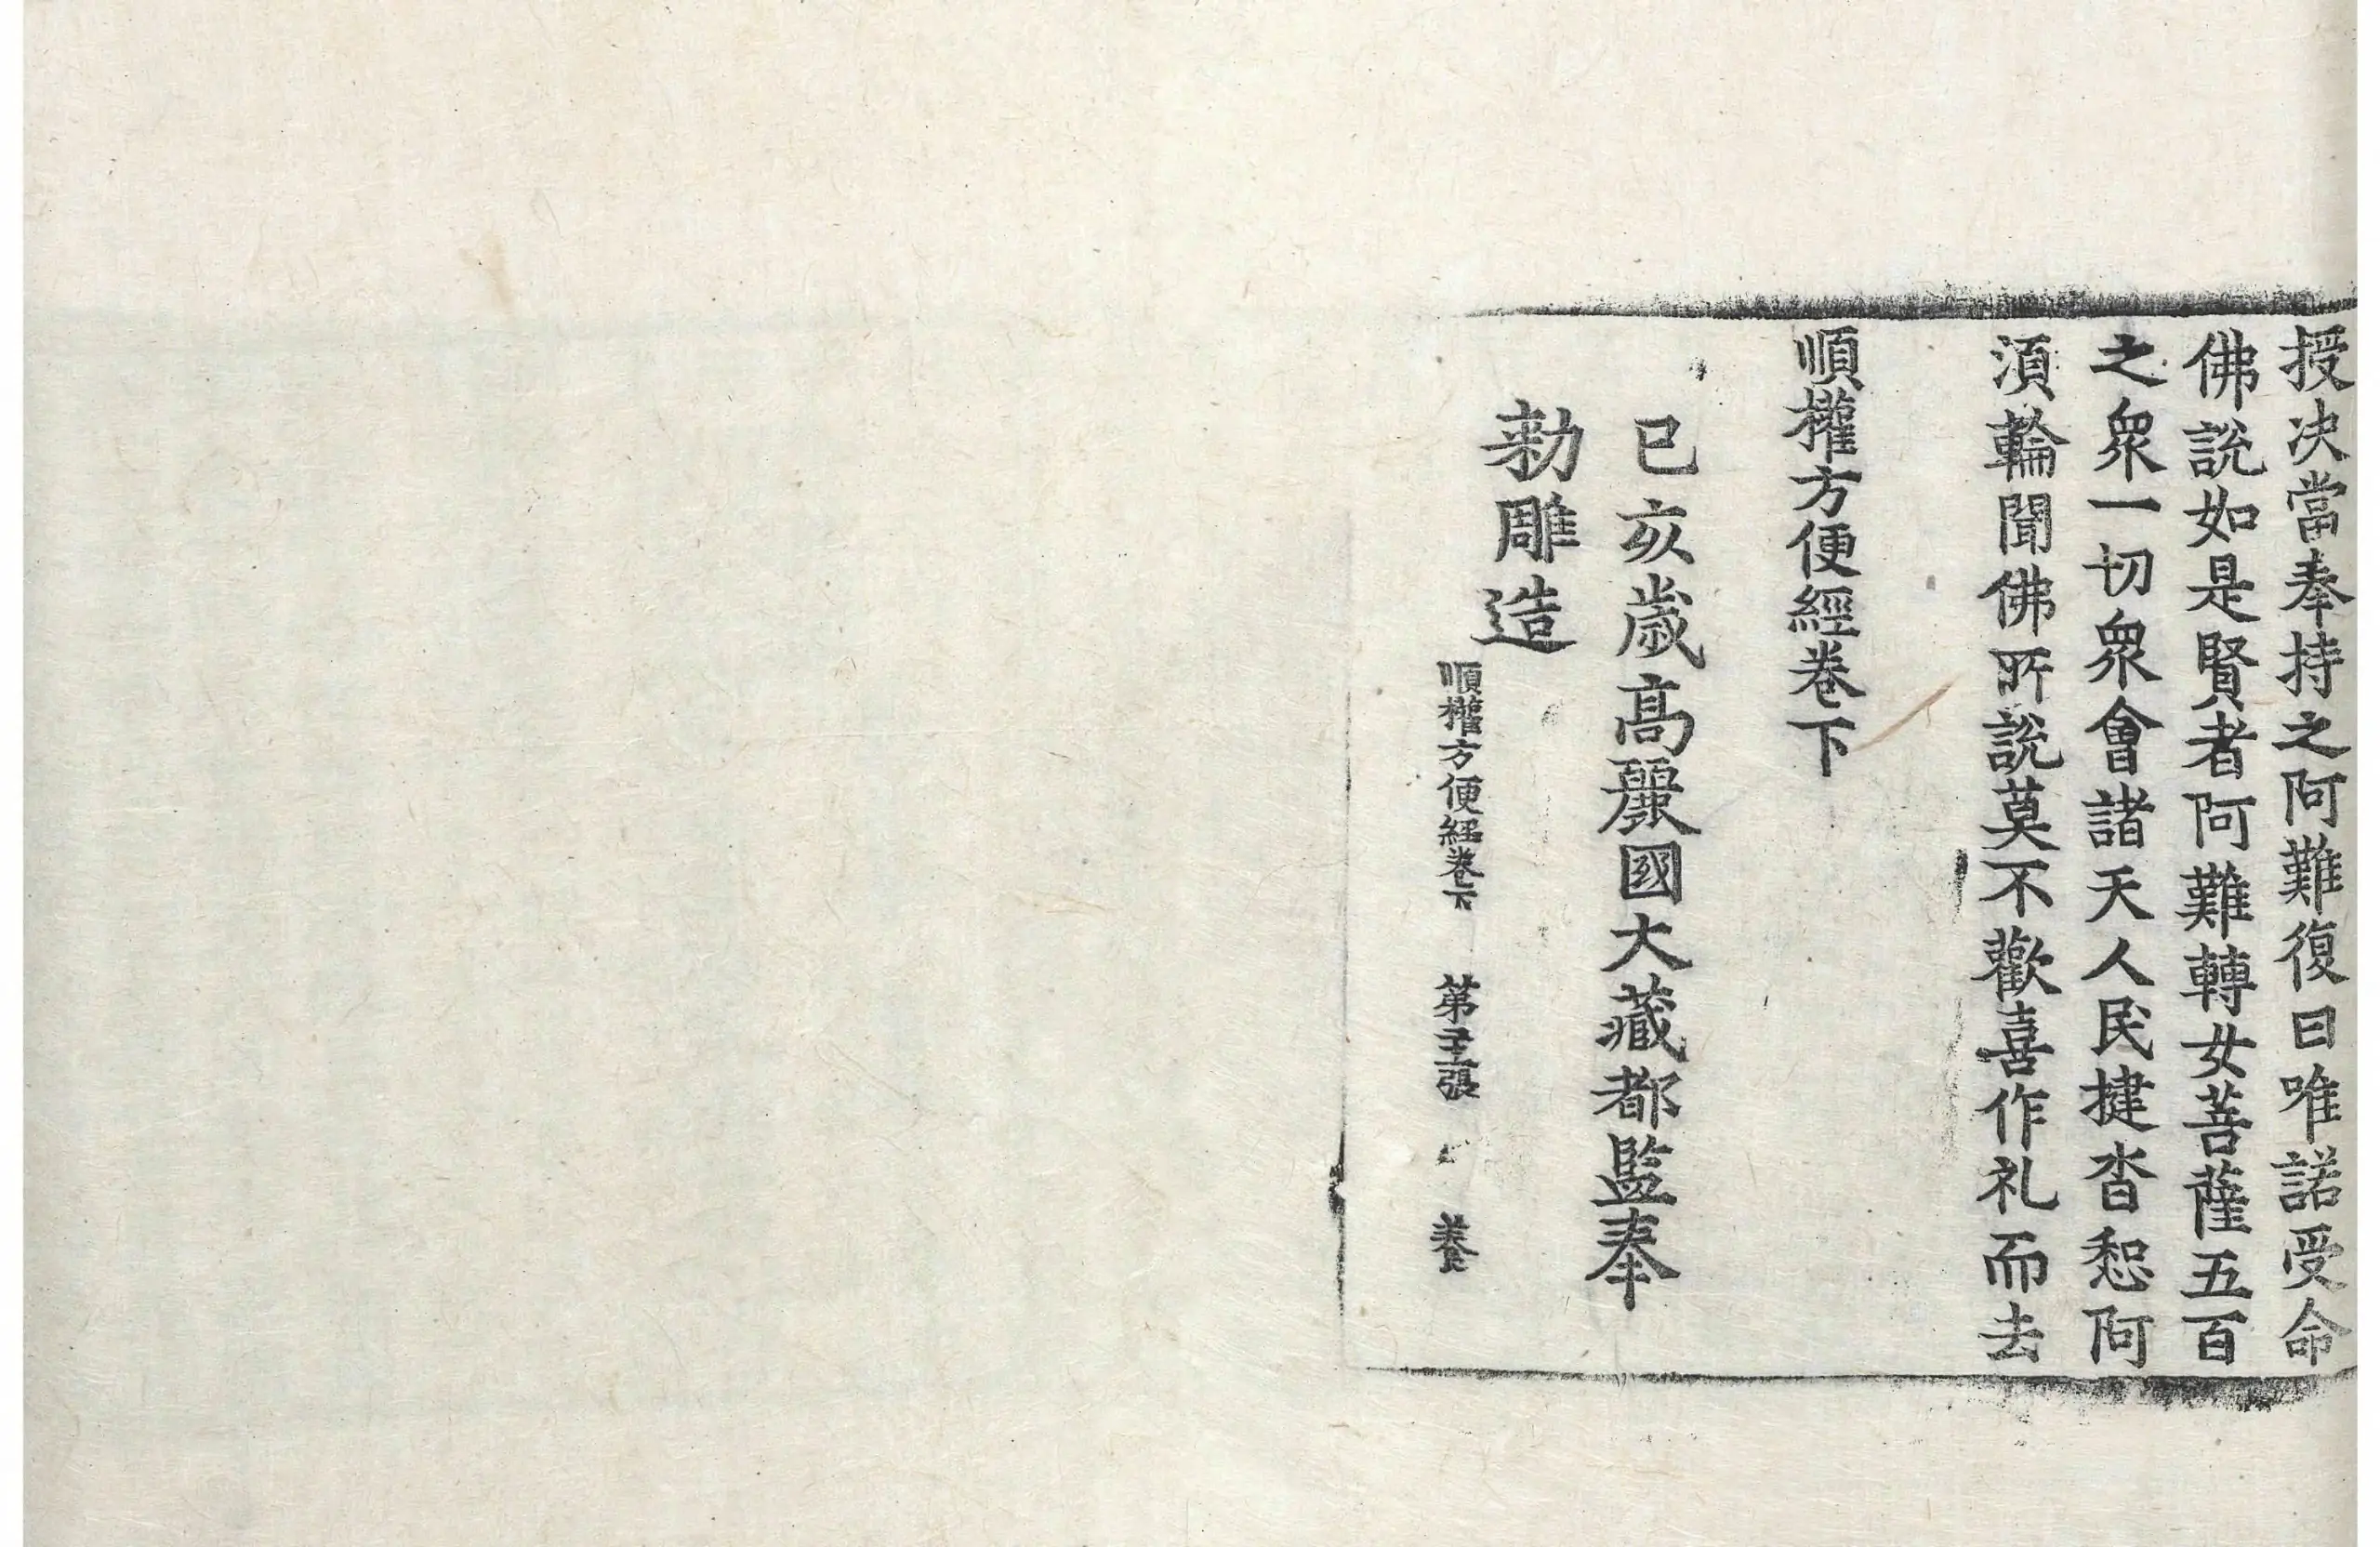 授决當奉持之阿難復曰唯諾受命
佛說如是賢者阿難轉女菩薩五百
之衆一切衆會諸天人民揵沓惒阿
湏輪聞佛所說莫不歡喜作礼而去
順權方便經卷下
已亥歲高麗國大藏都監奉
勑雕造
順權方便經卷下 第 張 養